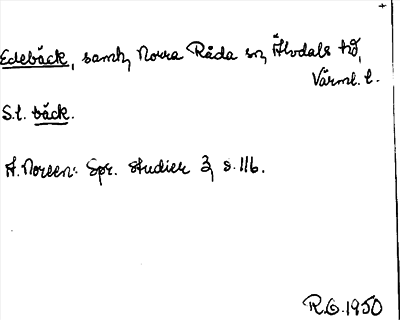 Edebäck, samh, Norra Råda sn, Älvdals hd,
Värml. l.
S.l. bäck.
A. Noreen: Spr. studier 3, s. 116.
R.O. 1950